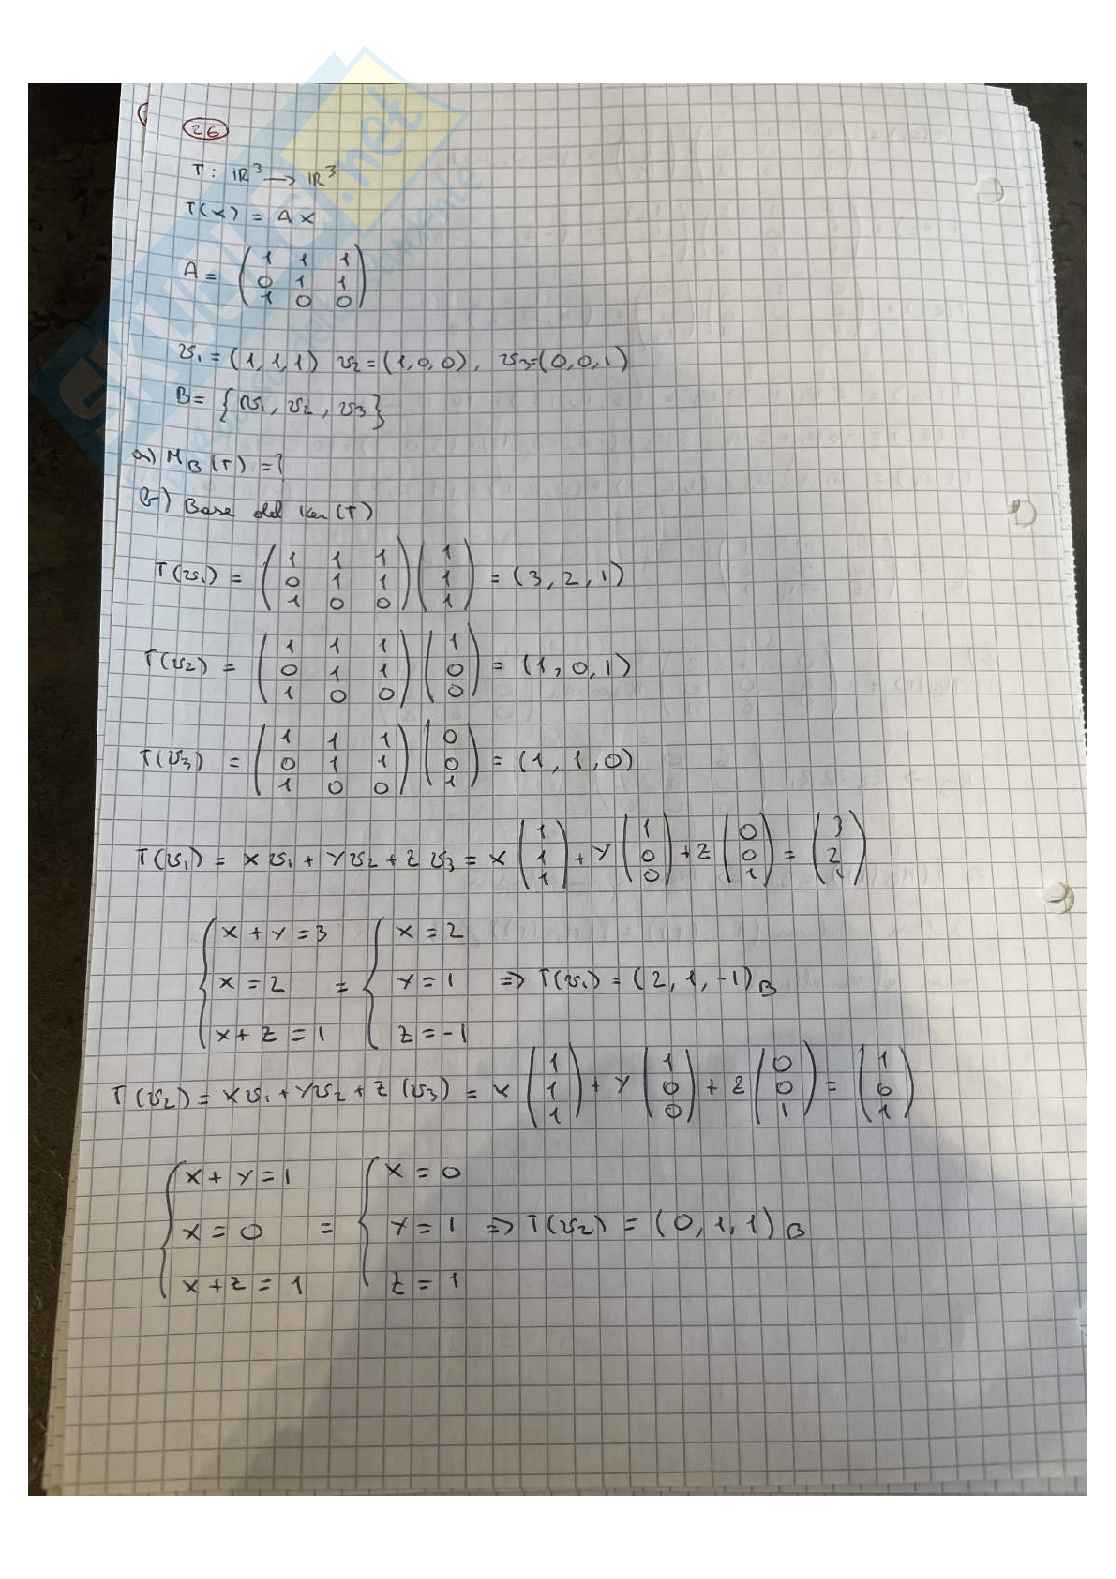 26
T: ℝ³ → ℝ³
T(x) = Ax
A = (1 1 1
0 1 1
1 0 0)
v₁ = (1,1,1) v₂ = (1,0,0), v₃ = (0,0,1)
B = {v₁, v₂, v₃}
a) M_B(T) = ?
b) Base del Ker(T)
T(v₁) = (1 1 1 / 0 1 1 / 1 0 0) (1 / 1 / 1) = (3, 2, 1)
T(v₂) = (1 1 1 / 0 1 1 / 1 0 0) (1 / 0 / 0) = (1, 0, 1)
T(v₃) = (1 1 1 / 0 1 1 / 1 0 0) (0 / 0 / 1) = (1, 1, 0)
T(v₁) = x v₁ + y v₂ + z v₃ = x (1 / 1 / 1) + y (1 / 0 / 0) + z (0 / 0 / 1) = (3 / 2 / 1)
{ x + y = 3 { x = 2
x = 2 = y = 1 ⇒ T(v₁) = (2, 1, -1)_B
x + z = 1 z = -1
T(v₂) = x v₁ + y v₂ + z (v₃) = x (1 / 1 / 1) + y (1 / 0 / 0) + z (0 / 0 / 1) = (1 / 0 / 1)
{ x + y = 1 { x = 0
x = 0 = y = 1 ⇒ T(v₂) = (0, 1, 1)_B
x + z = 1 z = 1